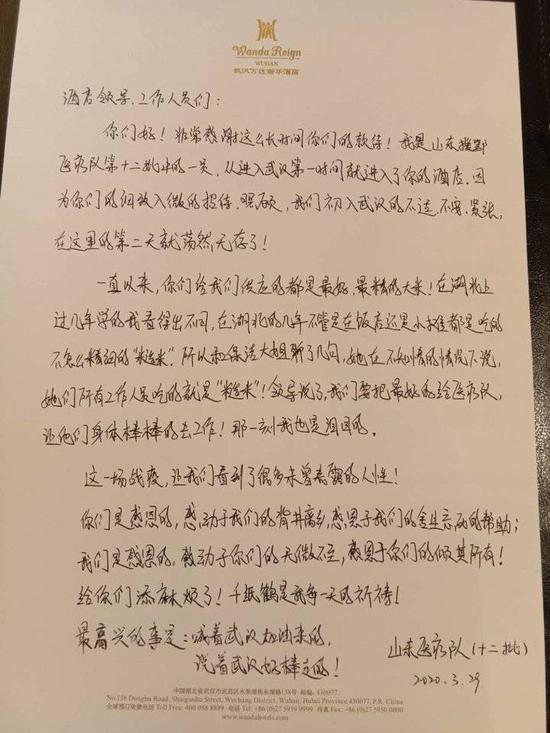 Wanda Reign
WUHAN
武汉万达瑞华酒店
酒店领导、工作人员们：
你们好！非常感谢这么长时间你们的款待！我是山东援鄂
医疗队第十二批中的一员，从进入武汉第一时间就进入了你的酒店。因
为你们的细致入微的招待、照顾，我们初入武汉的不适、不安、紧张，
在这里的第二天就荡然无存了！
一直以来，你们给我们供应的都是最好、最精的大米！在湖北上
过几年学的我看得出不同，在湖北的几年不管是在饭店还是小摊都是吃的
不怎么精细的“糙米”。所以和保洁大姐聊了几句，她在不知情的情况下说，
她们所有工作人员吃的就是“糙米”！领导说了，我们要把最好的给医疗队，
让他们身体棒棒的去工作！那一刻我也是泪目的。
这一场战疫，让我们看到了很多未曾表露的人性！
你们是感恩的，感动于我们的背井离乡，感恩于我们的舍生忘死的帮助；
我们是感恩的，感动于你们的无微不至，感恩于你们的倾其所有！
给你们添麻烦了！千纸鹤是我每一天的祈祷！
最高兴的事是：喊着武汉加油来的，
说着武汉好棒走的！
山东医疗队（十二批）
2020.3.29
中国湖北省武汉市武昌区水果湖街东湖路138号 邮编：430077
No.138 Donghu Road, Shuiguohu Street, Wuchang District, Wuhan, Hubei Province 430077, P.R. China
全球预订免费电话 Toll Free: 400 098 8899 电话 Tel: +86 (0)27 5959 9999 传真 Fax: +86 (0)27 5950 0000
www.wandahotels.com